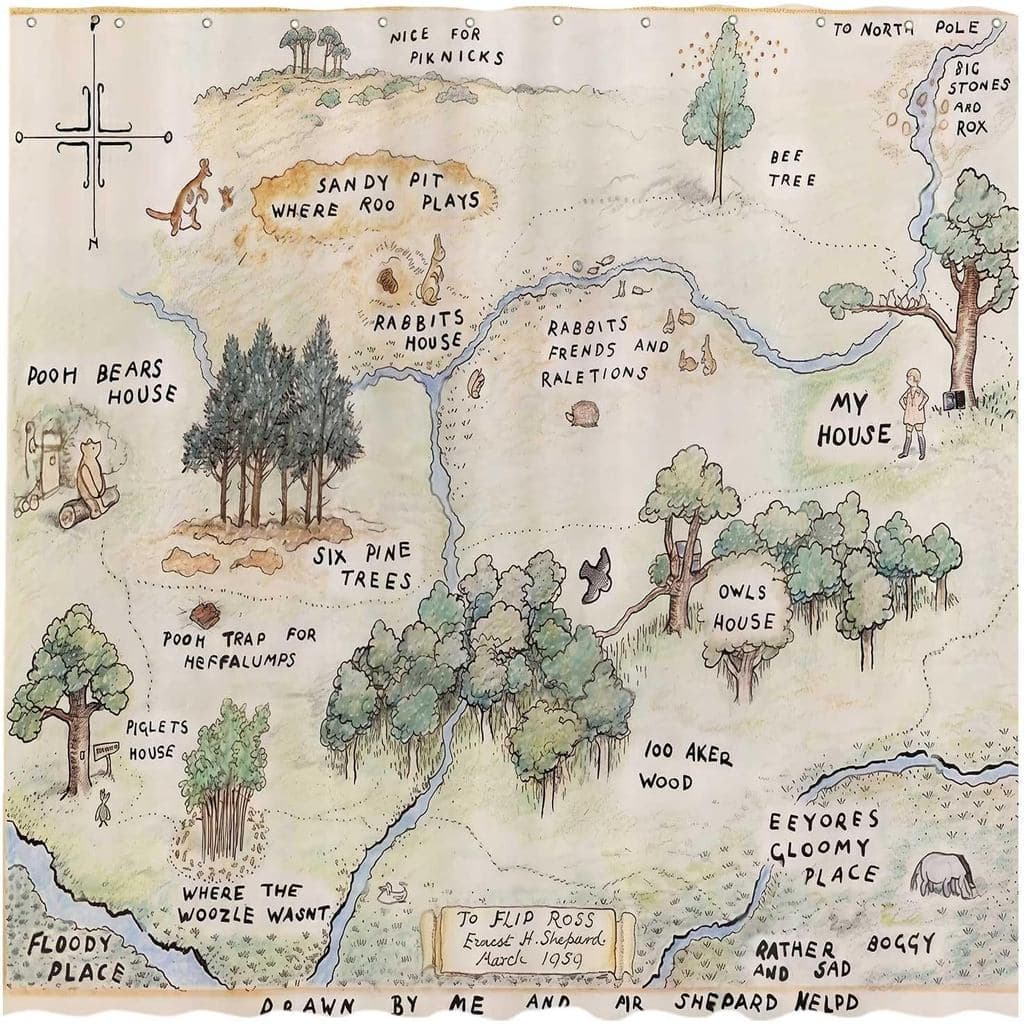 NICE FOR
PIKNICKS
TO NORTH POLE
BIG
STONES
AND
ROX
BEE
TREE
P
SANDY PIT
WHERE ROO PLAYS
N
RABBITS
HOUSE
RABBITS
FRENDS AND
RALETIONS
POOH BEARS
HOUSE
MY
HOUSE
SIX PINE
TREES
OWLS
HOUSE
POOH TRAP FOR
HEFFALUMPS
PIGLETS
HOUSE
100 AKER
WOOD
EEYORES
GLOOMY
PLACE
WHERE THE
WOOZLE WASNT
TO FLIP ROSS
Ernest H. Shepard
March 1959
FLOODY
PLACE
RATHER BOGGY
AND SAD
DRAWN BY ME AND MR SHEPARD HELPD